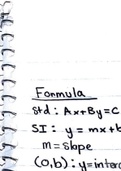 Formula
Std: Ax+By=C
SI: y = mx+b
m = slope
(0,b): y=interc